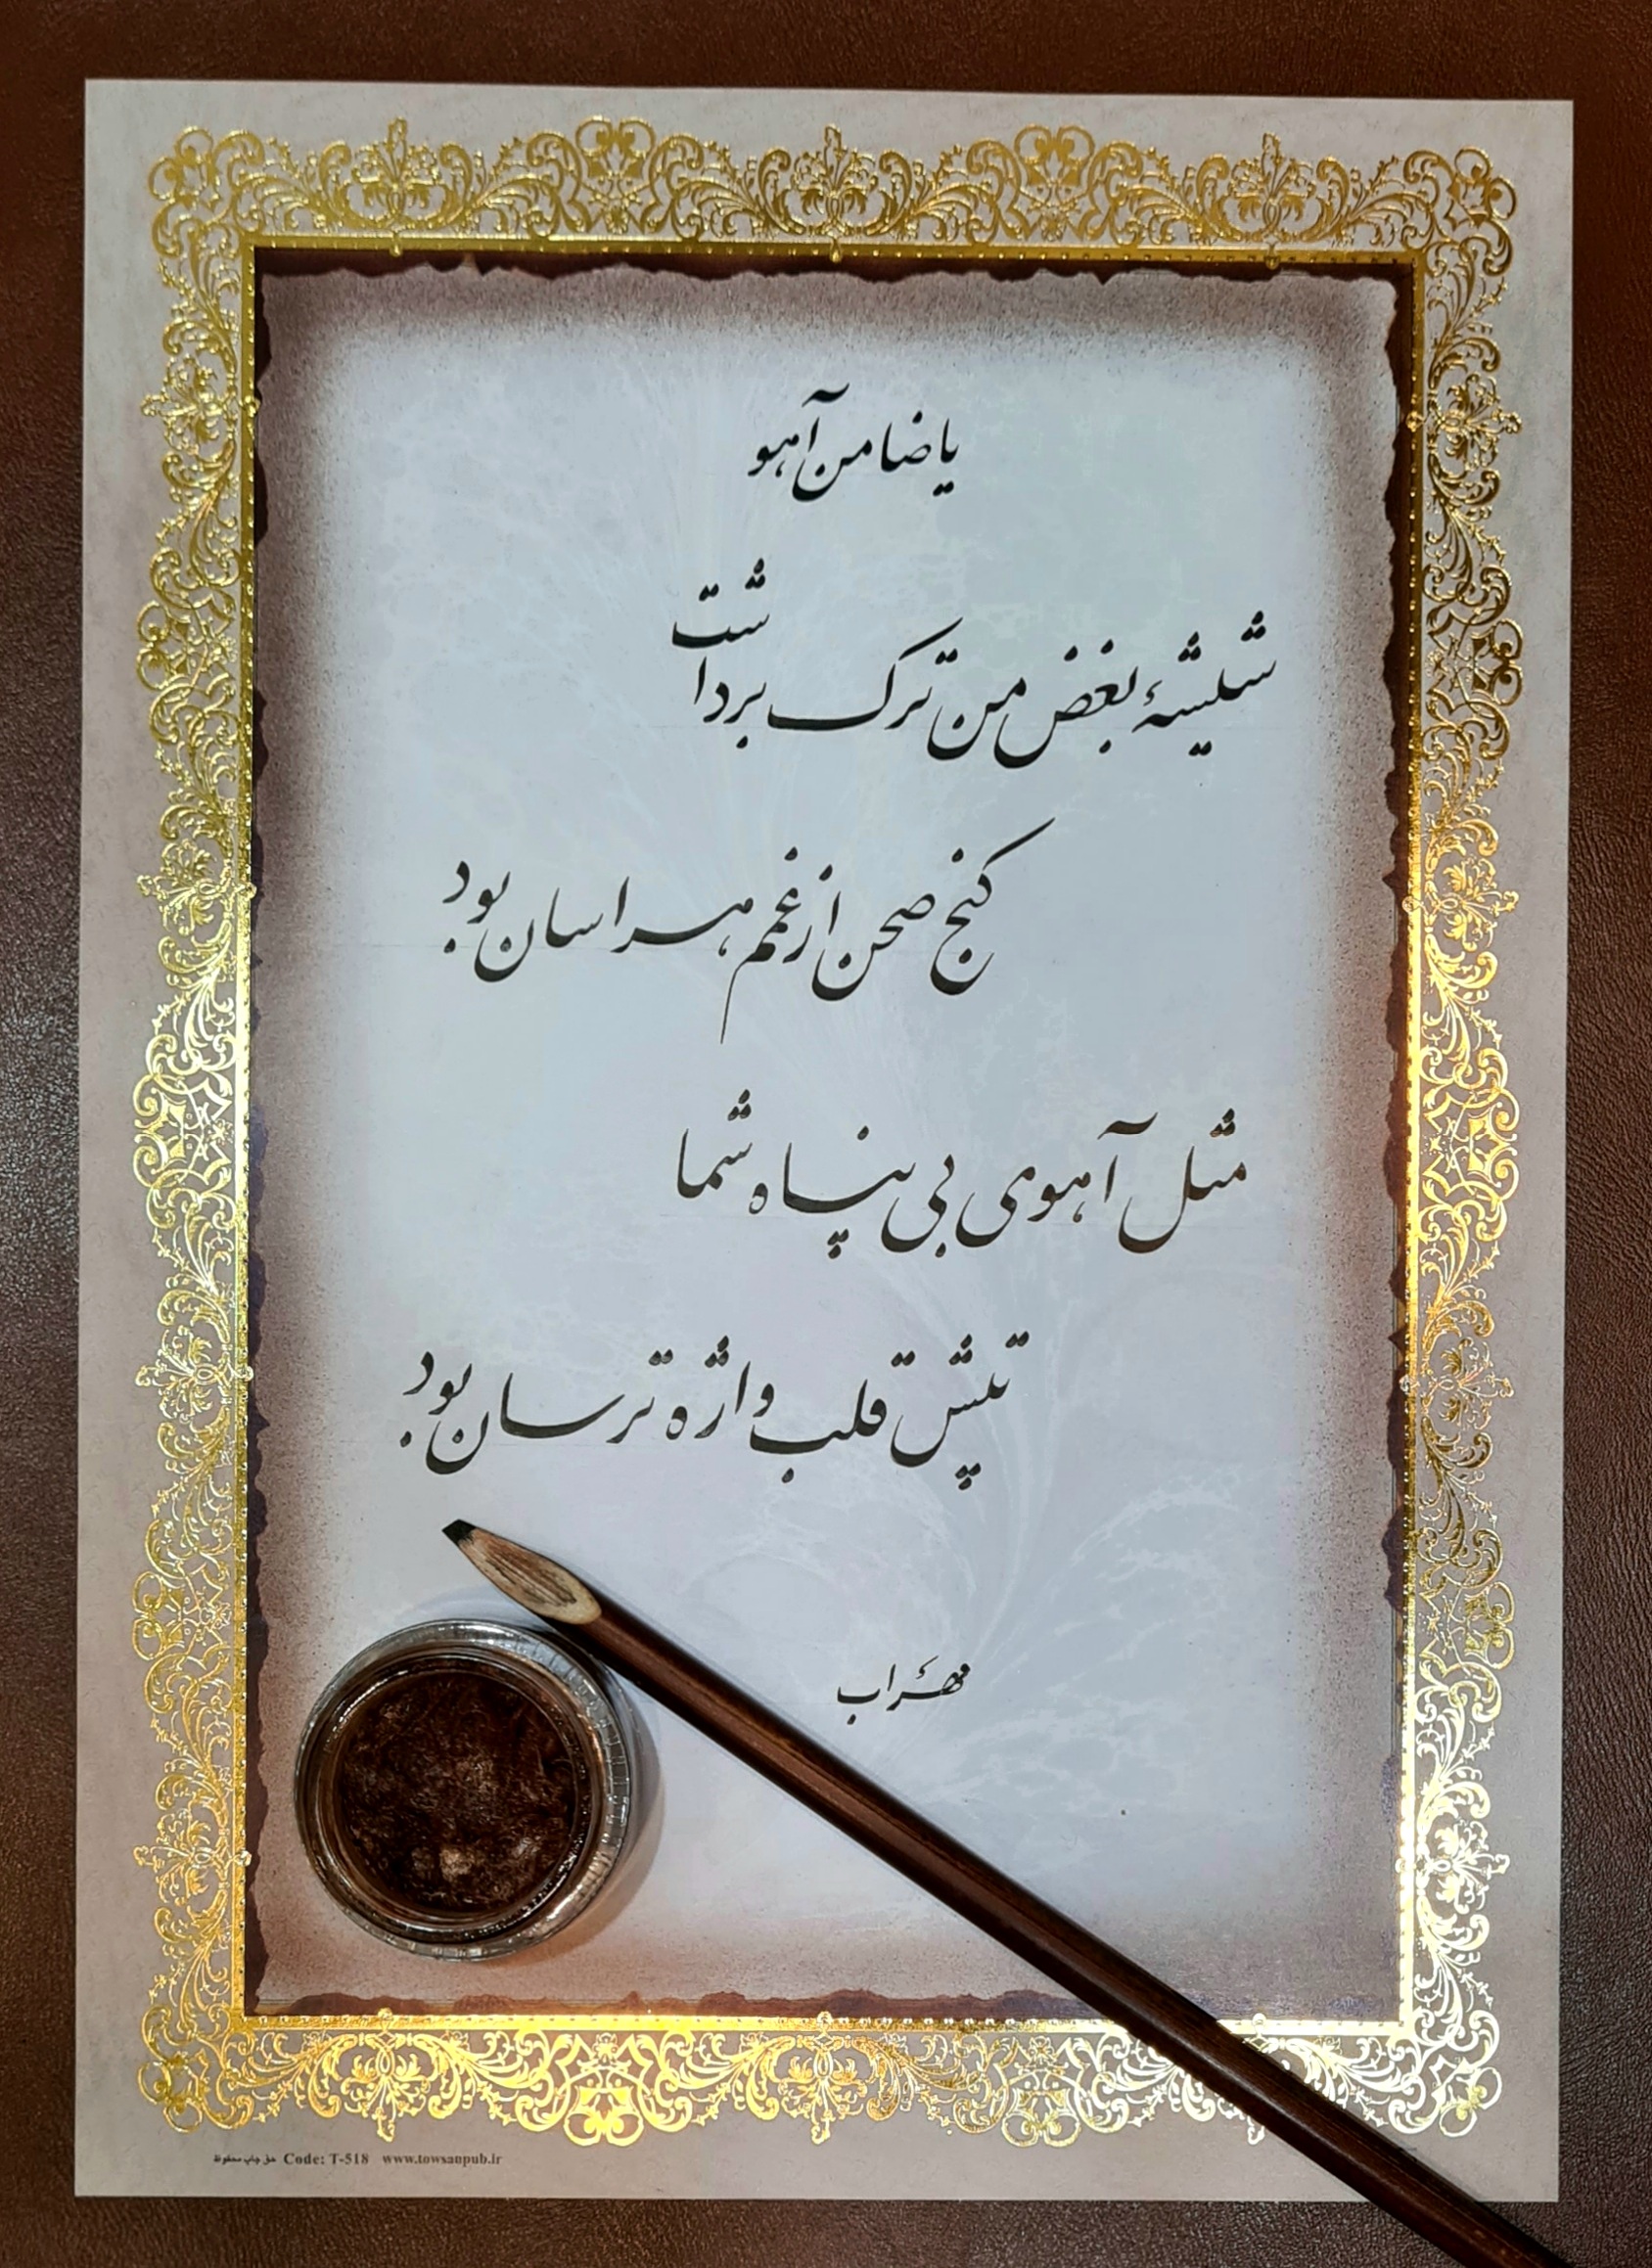 یا ضامن آهو
شیشهٔ بغض من ترک برداشت
کنج صحن از غمم هراسان بود
مثل آهوی بی پناه شما
تپش قلب واژه ترسان بود
مهراب
حق چاپ محفوظ Code: T-518 www.towsanpub.ir